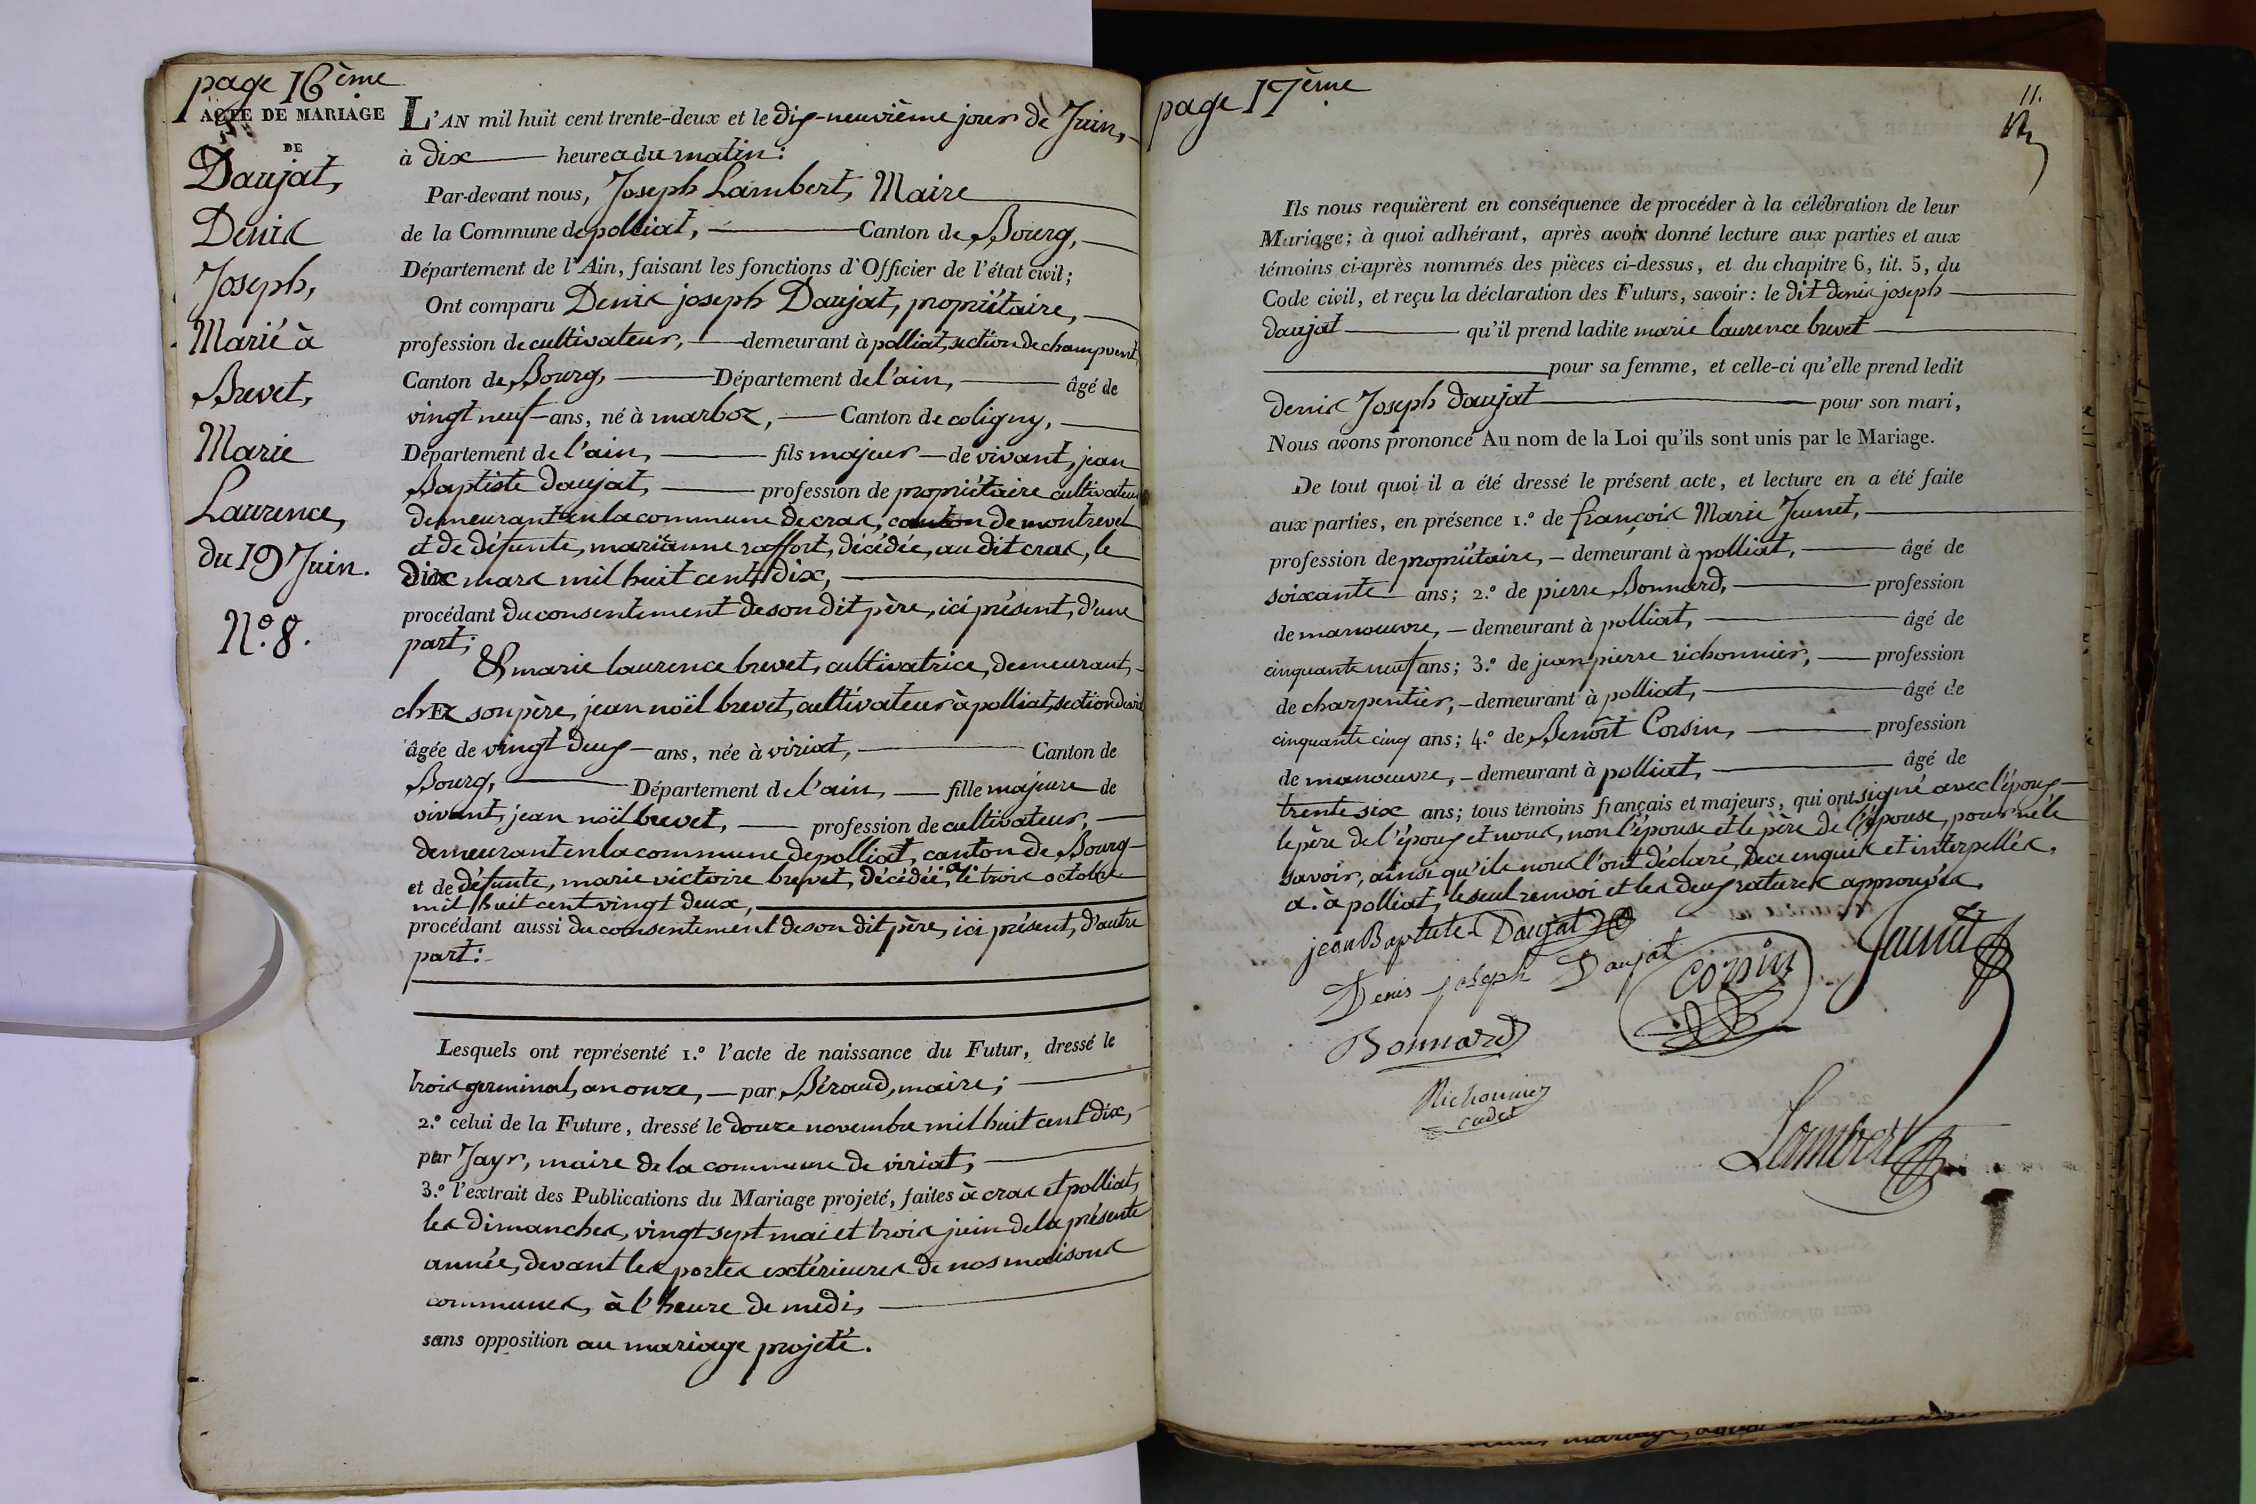 page 16ème
ACTE DE MARIAGE
DE
Daujat,
Denis
Joseph,
Marié à
Brevet,
Marie
Laurence,
du 19 Juin.
N.º 8.
L'AN mil huit cent trente-deux et le dix-neuvième jour de Juin,
à dix heures du matin:
Par-devant nous, Joseph Lambert, Maire
de la Commune de polliat, Canton de Bourg,
Département de l'Ain, faisant les fonctions d'Officier de l'état civil;
Ont comparu Denis joseph Daujat, propriétaire,
profession de cultivateur, demeurant à polliat, section de champvent,
Canton de Bourg, Département de l'ain, âgé de
vingt neuf ans, né à marboz, Canton de coligny,
Département de l'ain, fils majeur de vivant, jean
Baptiste daujat, profession de propriétaire cultivateur
demeurant en la commune de cras, canton de montrevel
et de défunte, marianne raffort, décédée, au dit cras, le
dix mars mil huit cent dix,
procédant du consentement de son dit père, ici présent, d'une
part;
& marie laurence brevet, cultivatrice, demeurant,
chez son père, jean noël brevet, cultivateur à polliat, section
âgée de vingt deux ans, née à viriat, Canton de
Bourg, Département de l'ain, fille majeure de
vivant, jean noël brevet, profession de cultivateur,
demeurant en la commune de polliat, canton de Bourg
et de défunte, marie victoire brevet, décédée, a le trois octobre
mil huit cent vingt deux,
procédant aussi du consentement de son dit père, ici présent, d'autre
part:
Lesquels ont représenté 1.º l'acte de naissance du Futur, dressé le
trois germinal, an onze, par Béraud, maire;
2.º celui de la Future, dressé le douze novembre mil huit cent dix,
par Jayr, maire de la commune de viriat,
3.º l'extrait des Publications du Mariage projeté, faites à cras et polliat,
les dimanches, vingt sept mai et trois juin de la présente
année, devant les portes extérieures de nos maisons
communes, à l'heure de midi,
sans opposition au mariage projeté.
page 17ème
11.
Ils nous requièrent en conséquence de procéder à la célébration de leur
Mariage; à quoi adhérant, après avoir donné lecture aux parties et aux
témoins ci-après nommés des pièces ci-dessus, et du chapitre 6, tit. 5, du
Code civil, et reçu la déclaration des Futurs, savoir: le dit denis joseph
daujat qu'il prend ladite marie laurence brevet
pour sa femme, et celle-ci qu'elle prend ledit
denis Joseph daujat pour son mari,
Nous avons prononcé Au nom de la Loi qu'ils sont unis par le Mariage.
De tout quoi il a été dressé le présent acte, et lecture en a été faite
aux parties, en présence 1.º de françois Marie Jeunet,
profession de propriétaire, demeurant à polliat, âgé de
soixante ans; 2.º de pierre Bonnard, profession
de manoeuvre, demeurant à polliat, âgé de
cinquante neuf ans; 3.º de jean pierre richonnier, profession
de charpentier, demeurant à polliat, âgé de
cinquante cinq ans; 4.º de Benoît Corsin, profession
de manoeuvre, demeurant à polliat, âgé de
trente six ans; tous témoins français et majeurs, qui ont signé avec l'époux
le père de l'époux et nous, non l'épouse et le père de l'épouse, pour ne le
savoir, ainsi qu'ils nous l'ont déclaré, de ce enquis et interpellés.
a. à polliat, le seul renvoi et les deux ratures approuvés.
jean Baptiste Daujat
Denis joseph Daujat
Corsin
Jeunet
Bonnard
Richonnier
cadet
Lambert